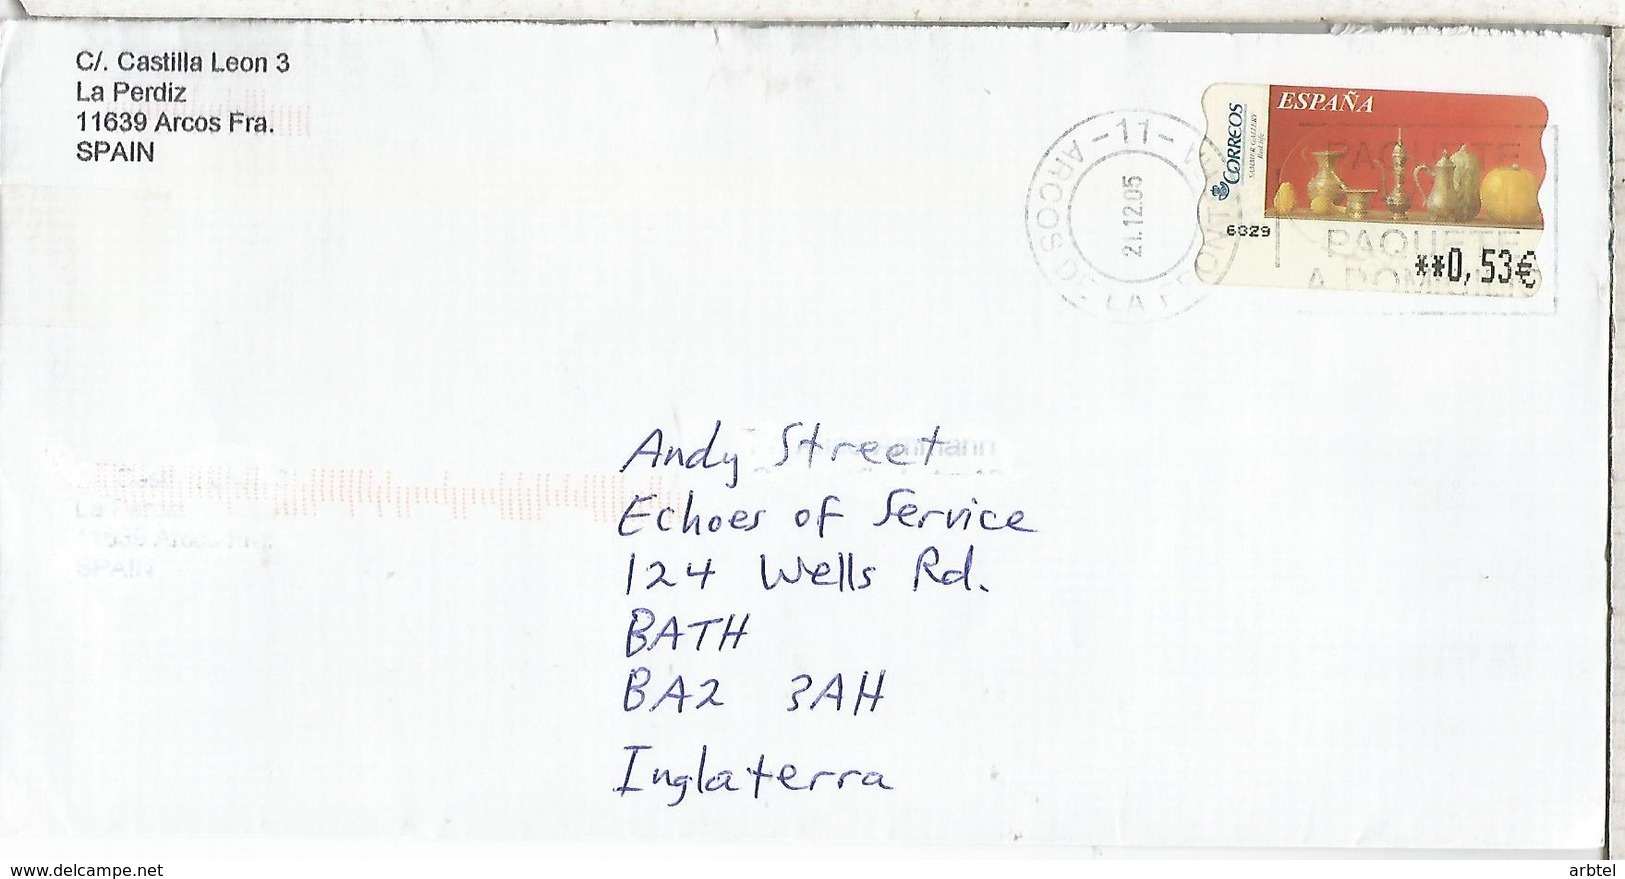 C/. Castilla Leon 3
La Perdiz
11639 Arcos Fra.
SPAIN
ESPAÑA
CORREOS
SAMMER GALLERY
6029
**0,53€
-11-
ARCOS DE LA FRONT
21.12.05
PAQUETE
PAQUETE
A DOMICILIO
Andy Street
Echoes of Service
124 Wells Rd.
BATH
BA2 3AH
Inglaterra
La Perdiz
11639 Arcos Fra.
SPAIN
www.delcampe.net
arbtel